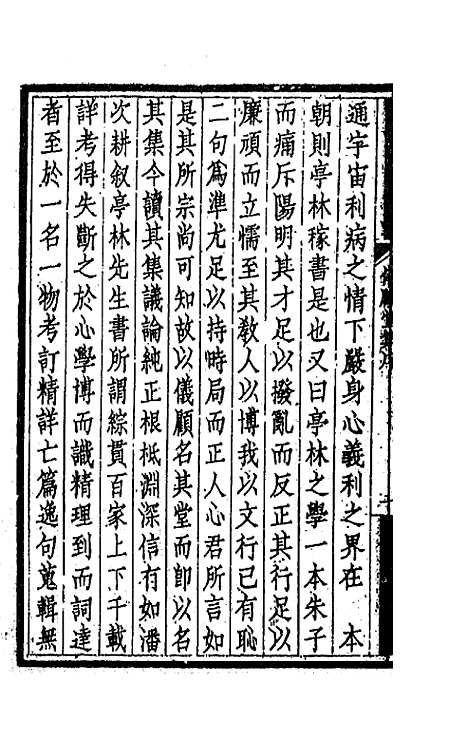 通宇宙利病之情下嚴身心義利之界在　本
朝則亭林稼書是也又曰亭林之學一本朱子
而痛斥陽明其才足以撥亂而反正其行足以
廉頑而立懦至其敎人以博我以文行己有恥
二句爲準尤足以持時局而正人心君所言如
是其所宗尚可知故以儀顧名其堂而卽以名
其集今讀其集議論純正根柢淵深信有如潘
次耕叙亭林先生書所謂綜貫百家上下千載
詳考得失斷之於心學博而識精理到而詞達
者至於一名一物考訂精詳亡篇逸句蒐輯無